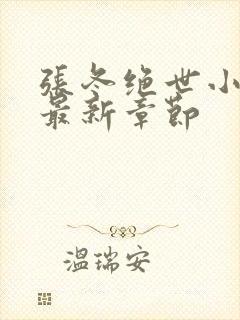 張冬绝世小
最新章節
溫瑞安